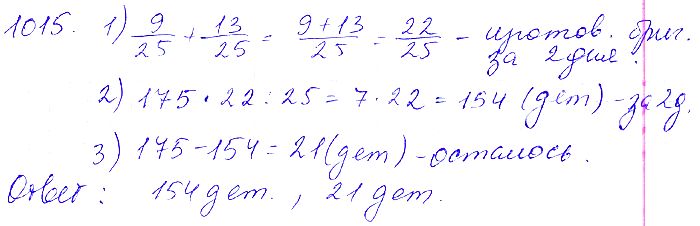 1015. 1) 9/25 + 13/25 = (9+13)/25 = 22/25 – изготов. бриг.
за 2 дня.
2) 175 · 22 : 25 = 7 · 22 = 154 (дет) – за 2 д.
3) 175 – 154 = 21 (дет) – осталось.
Ответ: 154 дет., 21 дет.